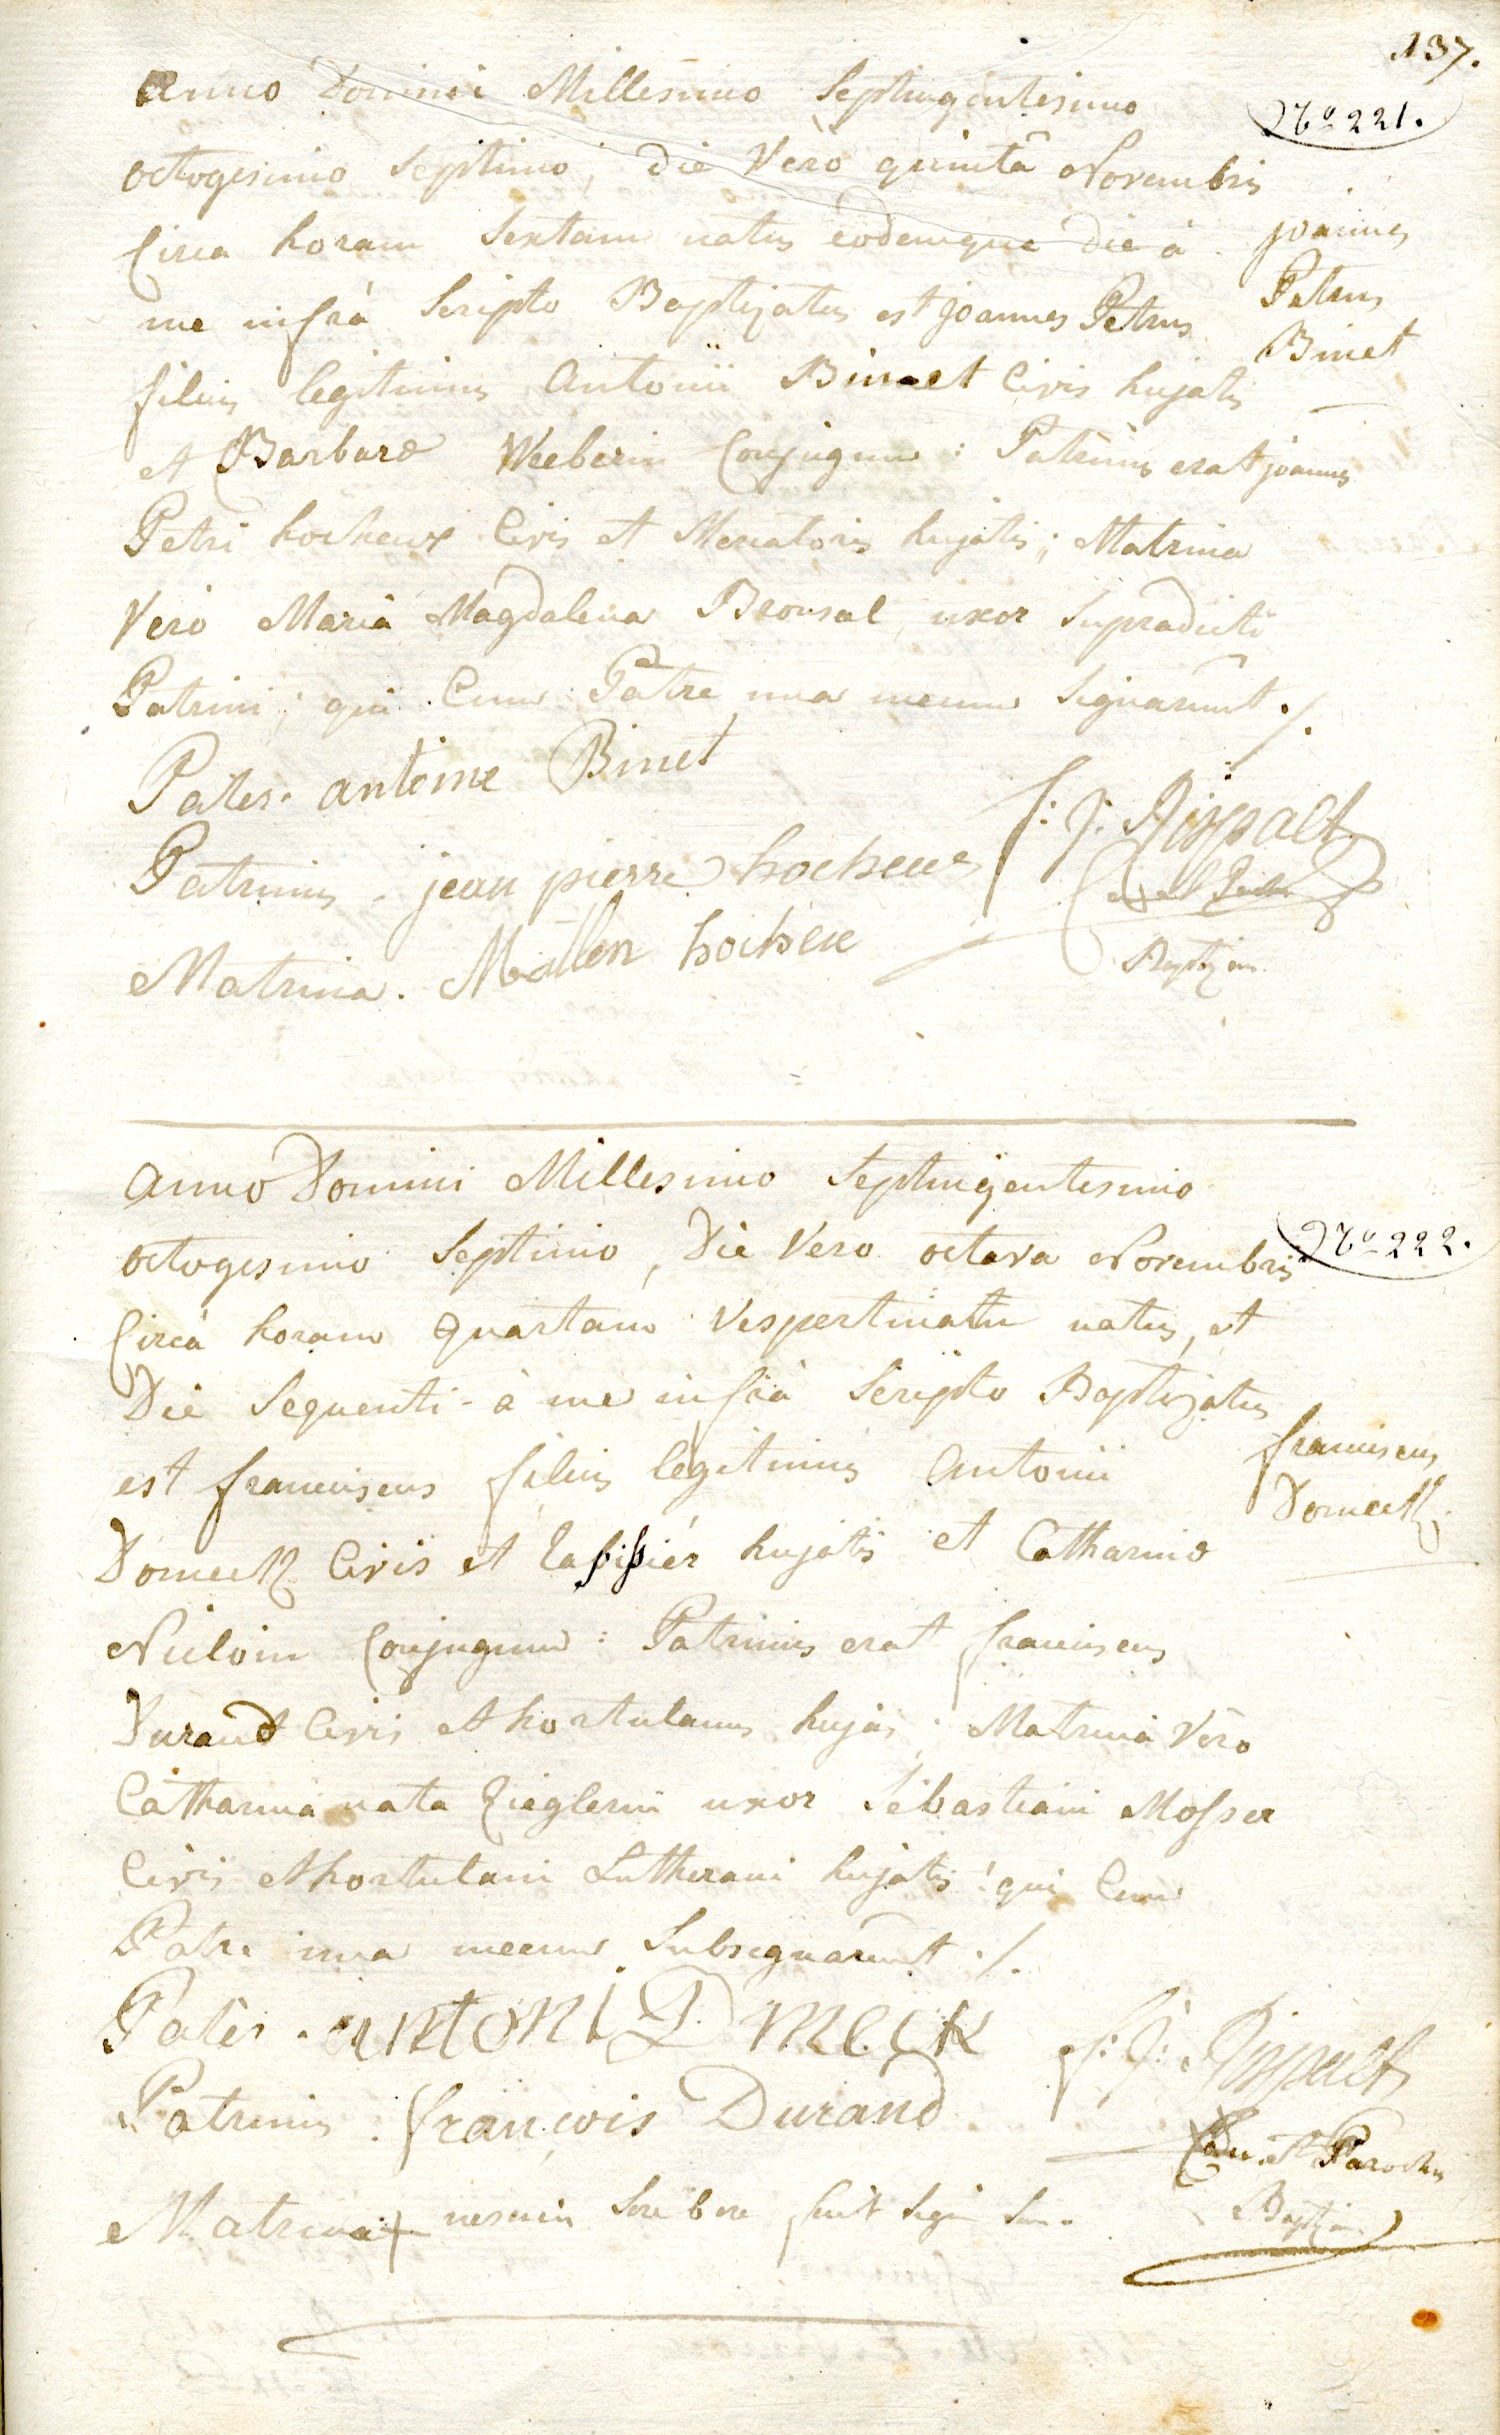 137.
Anno Domini Millesimo Septingentesimo
No 221.
octogesimo septimo, die Vero quintâ Novembris
Circa horam Sextam natus eodemque die à
joannes
Petrus
Binet
me infrà Scripto Baptizatus est joannes Petrus
filius legitimus Antonii Binnet Civis hujatis
et Barbarae Weeberin Conjugum : Patrinus erat joannes
Petri hocheux Civis et Mercatoris hujatis ; Matrina
Vero Maria Magdalena Bronsal uxor Supradicti
Patrini ; qui Cum Patre una mecum Signarunt ./.
Pater . antoine Binet
Patrinus . jean pierre hocheux
Matrina . hochex
Baptizans
Anno Domini Millesimo Septingentesimo
No 222.
octogesimo Septimo, Die Vero octava Novembris
Circà horam quartam Vespertinatu natus, et
Die Sequenti à me infrà Scripto Baptizatus
est franciscus filius legitimus Antonii
franciscus
Domeck
Domeck Civis et hujatis et Catharinae
Conjugum : Patrinus erat franciscus
Durand Civis et hortulanus hujas ; Matrina Vero
Catharina nata Zieglerin uxor Sebastiani Mosser
Civis et hortulani Lutherani hujatis ! qui Cum
Patre una mecum Subsignarunt ./.
Pater . antoni D meck
Patrinus . françois Durand
Parochus
Matrina + nescia Scribere fecit Sign Sum .
Baptizans